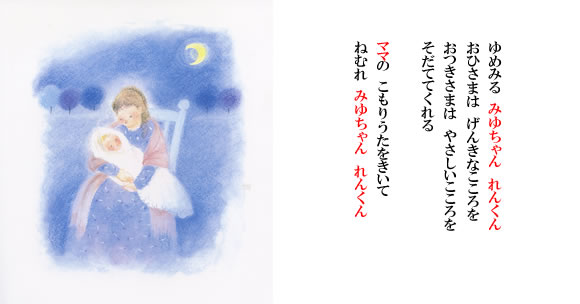 ゆめみる みゆちゃん れんくん
おひさまは げんきなこころを
おつきさまは やさしいこころを
そだててくれる
ママの こもりうたをきいて
ねむれ みゆちゃん れんくん